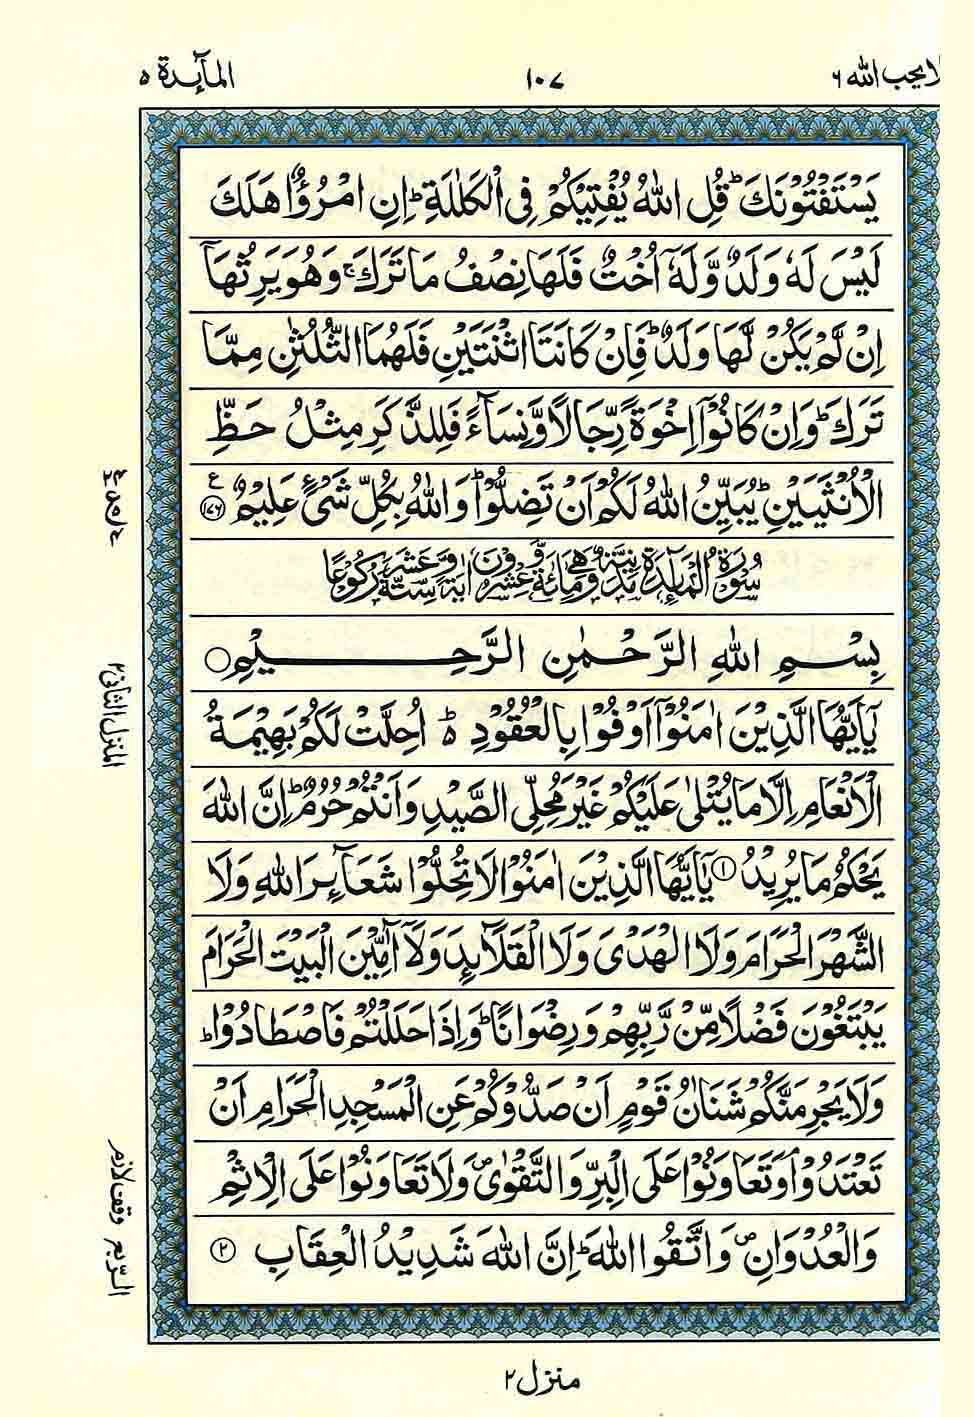 لا يحب الله ٦
١٠٧
المآئدة ٥
يَسْتَفْتُوْنَكَ ؕ قُلِ اللّٰهُ يُفْتِيْكُمْ فِى الْكَلٰلَةِ ؕ اِنِ امْرُؤٌا هَلَكَ
لَيْسَ لَهٗ وَلَدٌ وَّلَهٗۤ اُخْتٌ فَلَهَا نِصْفُ مَا تَرَكَ ۚ وَهُوَ يَرِثُهَاۤ
اِنْ لَّمْ يَكُنْ لَّهَا وَلَدٌ ؕ فَاِنْ كَانَتَا اثْنَتَيْنِ فَلَهُمَا الثُّلُثٰنِ مِمَّا
تَرَكَ ؕ وَاِنْ كَانُوْۤا اِخْوَةً رِّجَالًا وَّنِسَآءً فَلِلذَّكَرِ مِثْلُ حَظِّ
الْاُنْثَيَيْنِ ؕ يُبَيِّنُ اللّٰهُ لَكُمْ اَنْ تَضِلُّوْا ؕ وَاللّٰهُ بِكُلِّ شَىْءٍ عَلِيْمٌ ۧ ﴿١٧٦﴾
سُوْرَةُ الْمَآئِدَةِ مَدَنِيَّةٌ وَّهِىَ مِائَةٌ وَّعِشْرُوْنَ اٰيَةً وَّسِتَّةَ عَشَرَ رُكُوْعًا
بِسْمِ اللّٰهِ الرَّحْمٰنِ الرَّحِيْمِ ○
يٰۤاَيُّهَا الَّذِيْنَ اٰمَنُوْۤا اَوْفُوْا بِالْعُقُوْدِ ۵ؕ اُحِلَّتْ لَكُمْ بَهِيْمَةُ
الْاَنْعَامِ اِلَّا مَا يُتْلٰى عَلَيْكُمْ غَيْرَ مُحِلِّى الصَّيْدِ وَاَنْتُمْ حُرُمٌ ؕ اِنَّ اللّٰهَ
يَحْكُمُ مَا يُرِيْدُ ﴿١﴾ يٰۤاَيُّهَا الَّذِيْنَ اٰمَنُوْا لَا تُحِلُّوْا شَعَآئِرَ اللّٰهِ وَلَا
الشَّهْرَ الْحَرَامَ وَلَا الْهَدْىَ وَلَا الْقَلَآئِدَ وَلَاۤ آٰمِّيْنَ الْبَيْتَ الْحَرَامَ
يَبْتَغُوْنَ فَضْلًا مِّنْ رَّبِّهِمْ وَرِضْوَانًا ؕ وَاِذَا حَلَلْتُمْ فَاصْطَادُوْا ؕ
وَلَا يَجْرِمَنَّكُمْ شَنَاٰنُ قَوْمٍ اَنْ صَدُّوْكُمْ عَنِ الْمَسْجِدِ الْحَرَامِ اَنْ
تَعْتَدُوْا ۘ وَتَعَاوَنُوْا عَلَى الْبِرِّ وَالتَّقْوٰى ۪ وَلَا تَعَاوَنُوْا عَلَى الْاِثْمِ
وَالْعُدْوَانِ ۪ وَاتَّقُوا اللّٰهَ ؕ اِنَّ اللّٰهَ شَدِيْدُ الْعِقَابِ ﴿٢﴾
المنزل الثانى ٢
الربع
وقف لازم
منزل ٢